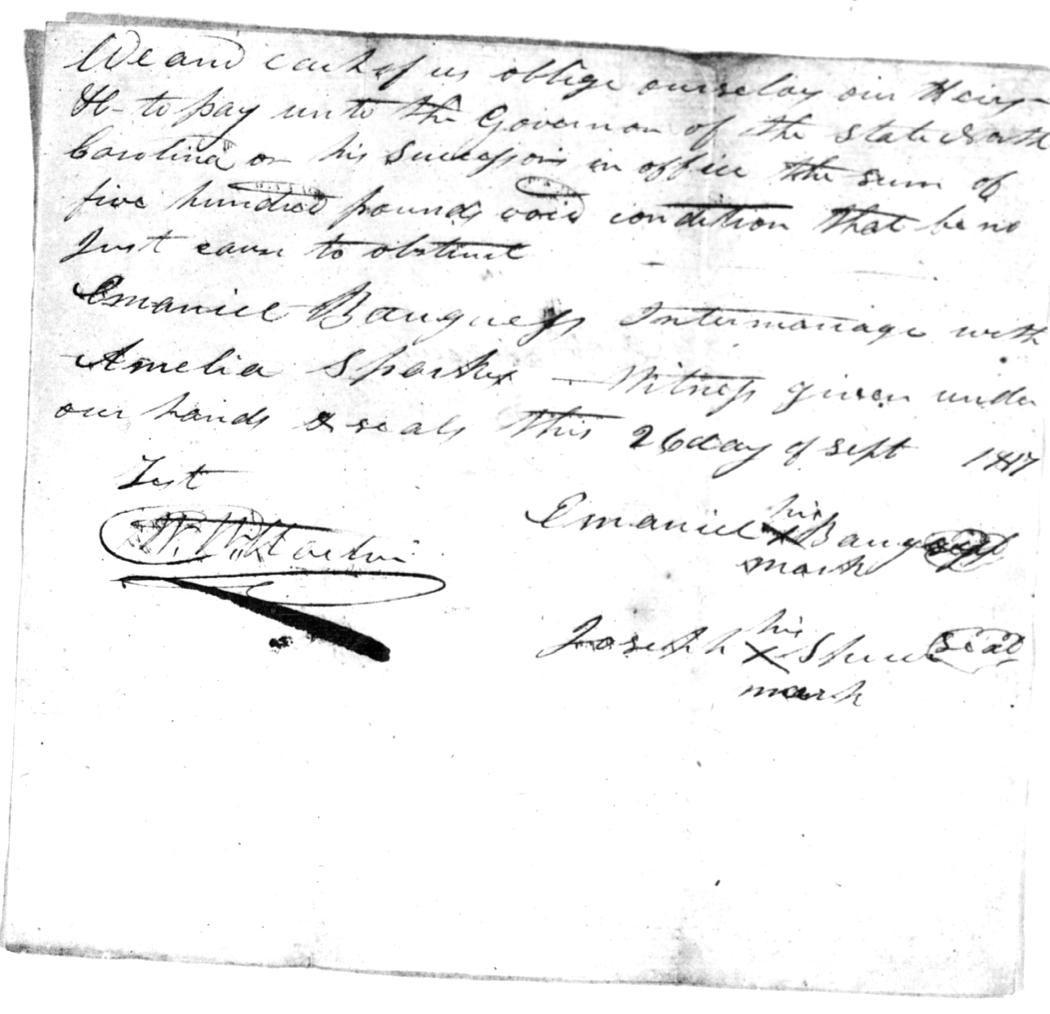 We and each of us oblige ourselvs our Heirs
&c- to pay unto the Governor of the State North
Carolina or his Successors in office the sum of
five hundred pounds void condition that be no
Just cause to obstruct
Emaniel Bauguess Intermariage with
Amelia Sparks - Witness given under
our hands & seals this 26 day of Sept 1817
Test
Emaniel his X mark Bauguess seal
Joseph his X mark seal